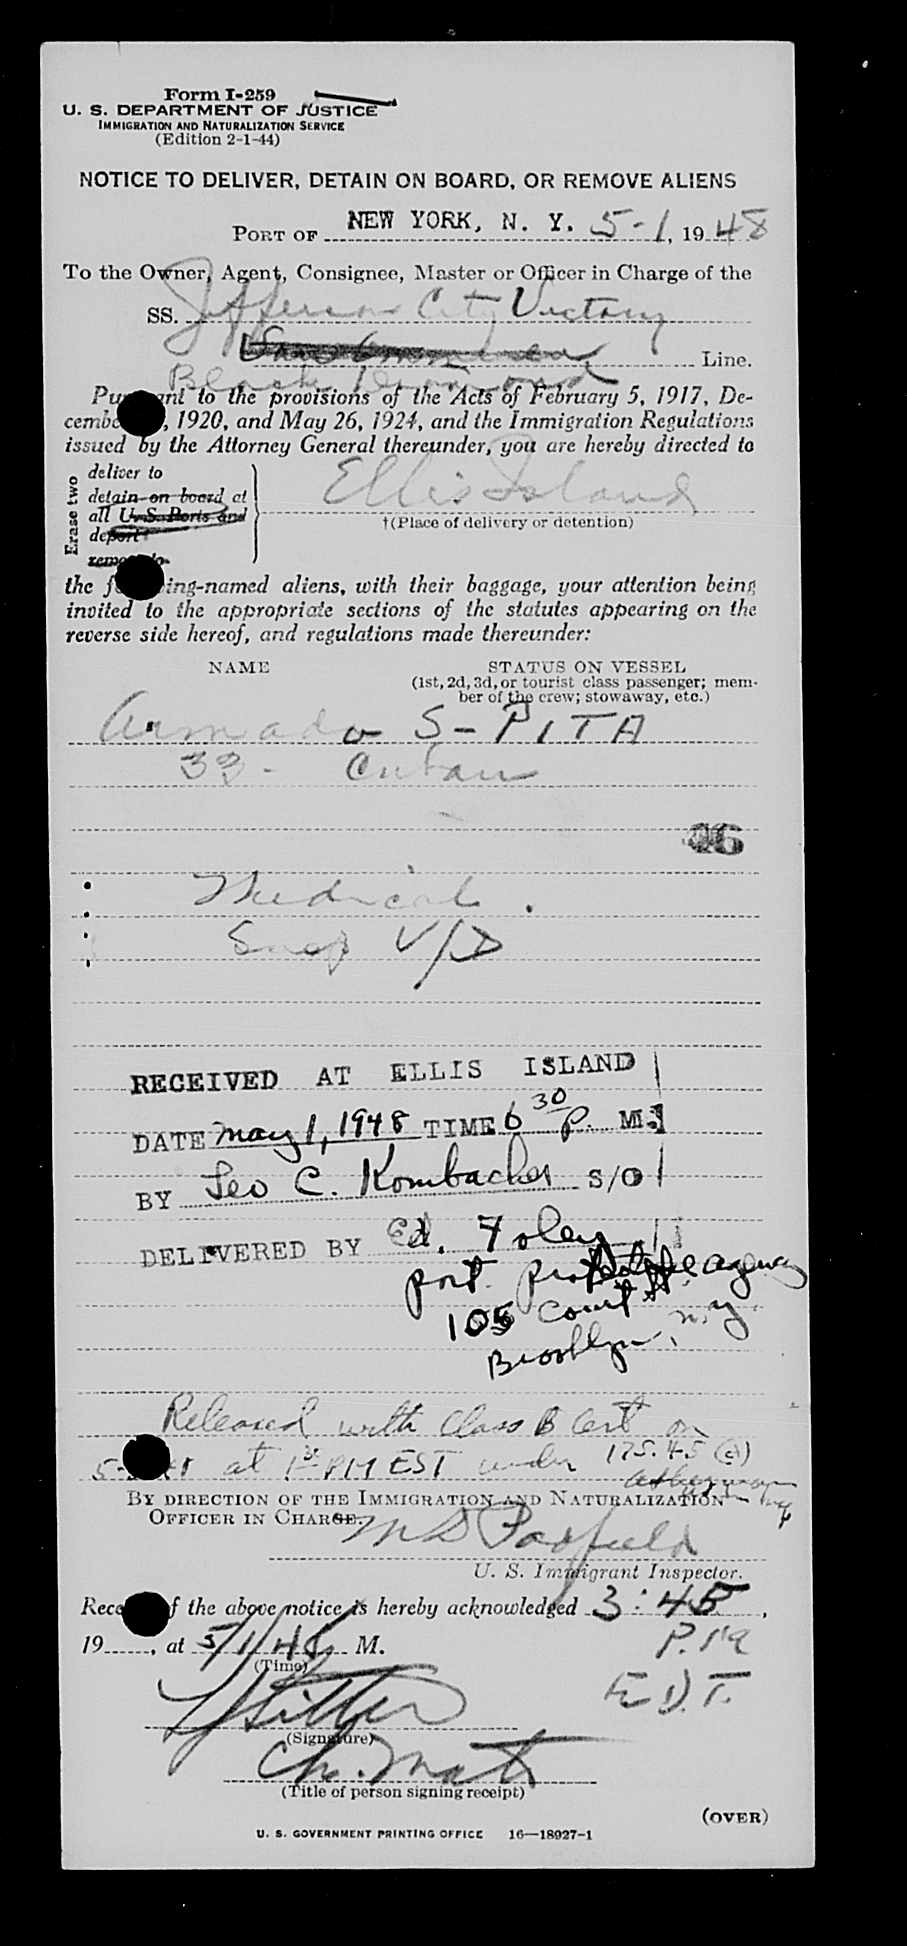 Form I-259
U. S. DEPARTMENT OF JUSTICE
IMMIGRATION AND NATURALIZATION SERVICE
(Edition 2-1-44)
NOTICE TO DELIVER, DETAIN ON BOARD, OR REMOVE ALIENS
PORT OF NEW YORK, N. Y. 5-1, 1948
To the Owner, Agent, Consignee, Master or Officer in Charge of the
SS. Jefferson City Victory
Line.
Black Diamond
Pursuant to the provisions of the Acts of February 5, 1917, De-
cember , 1920, and May 26, 1924, and the Immigration Regulations
issued by the Attorney General thereunder, you are hereby directed to
Erase two
deliver to
detain on board at
all U. S. Ports and
deport
remove to
Ellis Island
†(Place of delivery or detention)
the following-named aliens, with their baggage, your attention being
invited to the appropriate sections of the statutes appearing on the
reverse side hereof, and regulations made thereunder:
NAME STATUS ON VESSEL
(1st, 2d, 3d, or tourist class passenger; mem-
ber of the crew; stowaway, etc.)
Armado S - PITA
33 - Cuban
46
Medical.
Susp V/D
RECEIVED AT ELLIS ISLAND
DATE May 1, 1948 TIME 6 30 P. M.
BY Leo C. Kombacher S/O
DELIVERED BY Ed. Foley
Port Agency
105 Court St.
Brooklyn, N.Y.
Released with Class B Cert on
48 at 1 PM EST under 175.45 (a)
BY DIRECTION OF THE IMMIGRATION AND NATURALIZATION
OFFICER IN CHARGE.
M D Padfield
U. S. Immigrant Inspector.
Receipt of the above notice is hereby acknowledged 3:45,
P.M
19......, at 5/1/48 M.
(Time)
E.D.T.
(Signature)
Ch. Mate
(Title of person signing receipt)
(OVER)
U. S. GOVERNMENT PRINTING OFFICE 16—18927-1